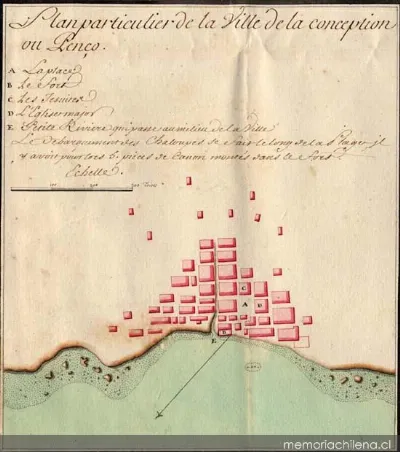 Plan particulier de la Ville de la conception
ou Penço.
A La place
B Le Fort
C Les Jesuites
D L'Eglise major
E Petite Riviere qui passe au milieu de la Ville
Le debarquement des Chaloupes se fait le long de la Plage; il
y avoit pour lors 6. pieces de Canon montés dans le Fort.
Echelle.
C
A D
B
E
memoriachilena.cl